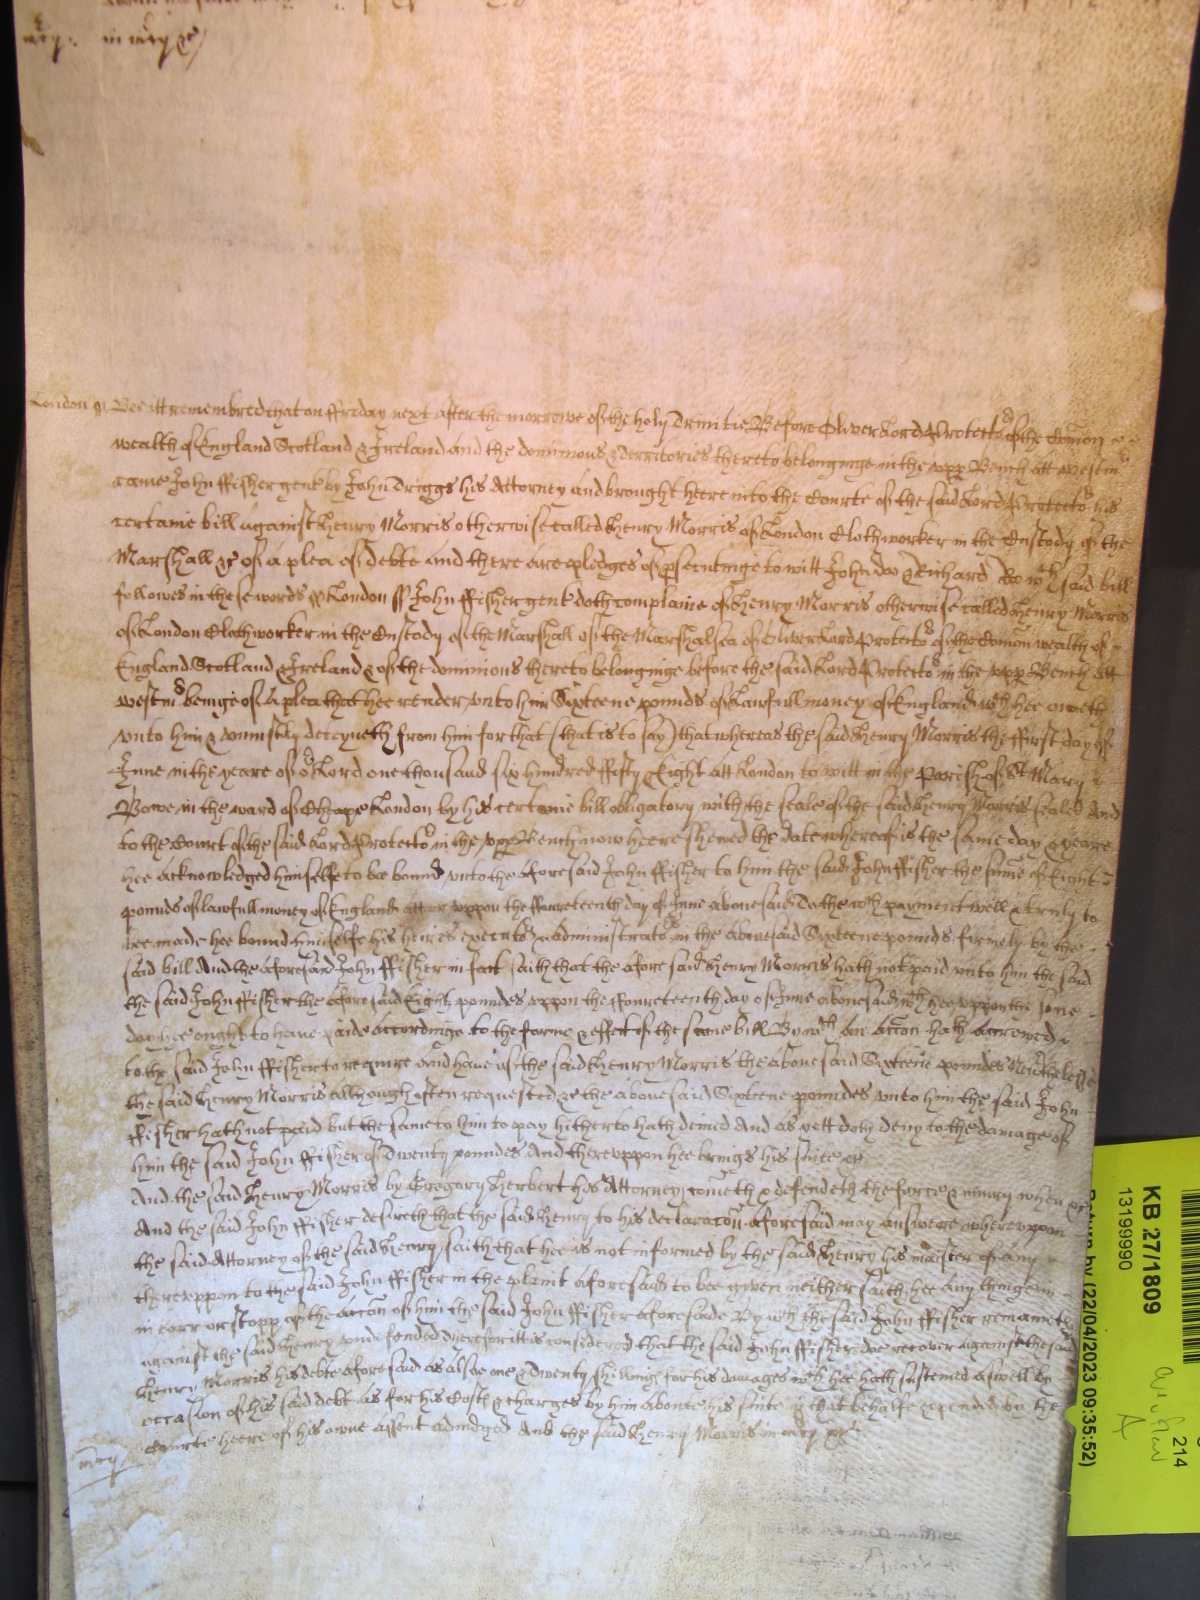 mcy: in mcy &c
London ss Bee itt remembred that on ffriday next after the morrowe of the holy Trinitie Before Oliver Lord Protector of the Comon
wealth of England Scotland & Ireland and the dominions & Territories thereto belonginge in the upp Bench att Westmr
came John ffisher gent by John Driggs his Attorney and brought heere into the Courte of the said Lord Protector his
certaine bill against Henry Morris otherwise called Henry Morris of London Clothworker in the Custody of the
Marshall &c of a plea of debte and there are pledges of psecutinge to witt John Doo & Richard Roo wch said bill
followes in these words ss London ss John ffisher gent doth complaine of Henry Morris otherwise called Henry Morris
of London Clothworker in the Custody of the Marshall of the Marshalsea of Oliver Lord Protector of the Comon wealth of
England Scotland & Ireland & of the dominions thereto belonginge before the said Lord Protector in the upp Bench att
Westmr beinge of a plea that hee render unto him Sixteene pounds of Lawfull money of England wch hee oweth
unto him & uniustly deteyneth from him for that (that is to say) that whereas the said Henry Morris the ffirst day of
June in the yeare of or Lord one thousand six hundred ffifty & Eight att London to witt in the Parish of St Mary
Bowe in the ward of Cheape London by his certaine bill obligatory with the seale of the said Henry Morris sealed and
to the Court of the said Lord Protector in the upp Bench now heere shewed the date whereof is the same day & yeare
hee acknowledged himselfe to bee bound unto the aforesaid John ffisher to him the said John ffisher the sume of Eight
pounds of lawfull money of England uppon the ffoureteenth day of June abovesaid To the wch payment well & truly to
bee made hee bound himselfe his heires executors & administrators in the abovesaid Sixteene pounds firmely by the
said bill And the aforesaid John ffisher in fact saith that the aforesaid Henry Morris hath not paid unto him the said
the said John ffisher the aforesaid Eight poundes uppon the ffoureteenth day of June abovesaid wch hee uppon the same
day hee ought to have paide accordinge to the forme & effect of the same bill By wch an accon hath accrewed
to the said John ffisher to require and have of the said Henry Morris the abovesaid Sixteene poundes Neithelesse
the said Henry Morris allthough often requested &c the abovesaid Sixteene poundes unto him the said John
ffisher hath not paid but the same to him to pay hitherto hath denied And as yett doth deny to the damage of
him the said John ffisher of Twenty poundes And thereuppon hee brings his suite &c
And the said Henry Morris by Gregory Herbert his Attorney cometh & defendeth the force & iniury when &c
And the said John ffisher desireth that the said Henry to his declaracon aforesaid may answere whereuppon
the said Attorney of the said Henry saith that hee is not informed by the said Henry his maister of any
thereuppon to the said John ffisher in the plaint aforesaid to bee given neither saith hee any thinge in
in barr or stopp of the accon of him the said John ffisher aforesaide By wch the said John ffisher remaineth
against the said Henry undefended Therefor itt is considered that the said John ffisher doe recover against the said
Henry Morris his debte aforesaid as alsoe one & twenty shillings for his damages wch hee hath susteined aswell by
occasion of his said debt as for his Costs & charges by him aboute his suite in that behalfe expended by the
Courte heere of his owne assent adiudged And the said Henry Morris in mcy &c
mcy
KB 27/1809
13199990
(22/04/2023 09:35:52)
214
A